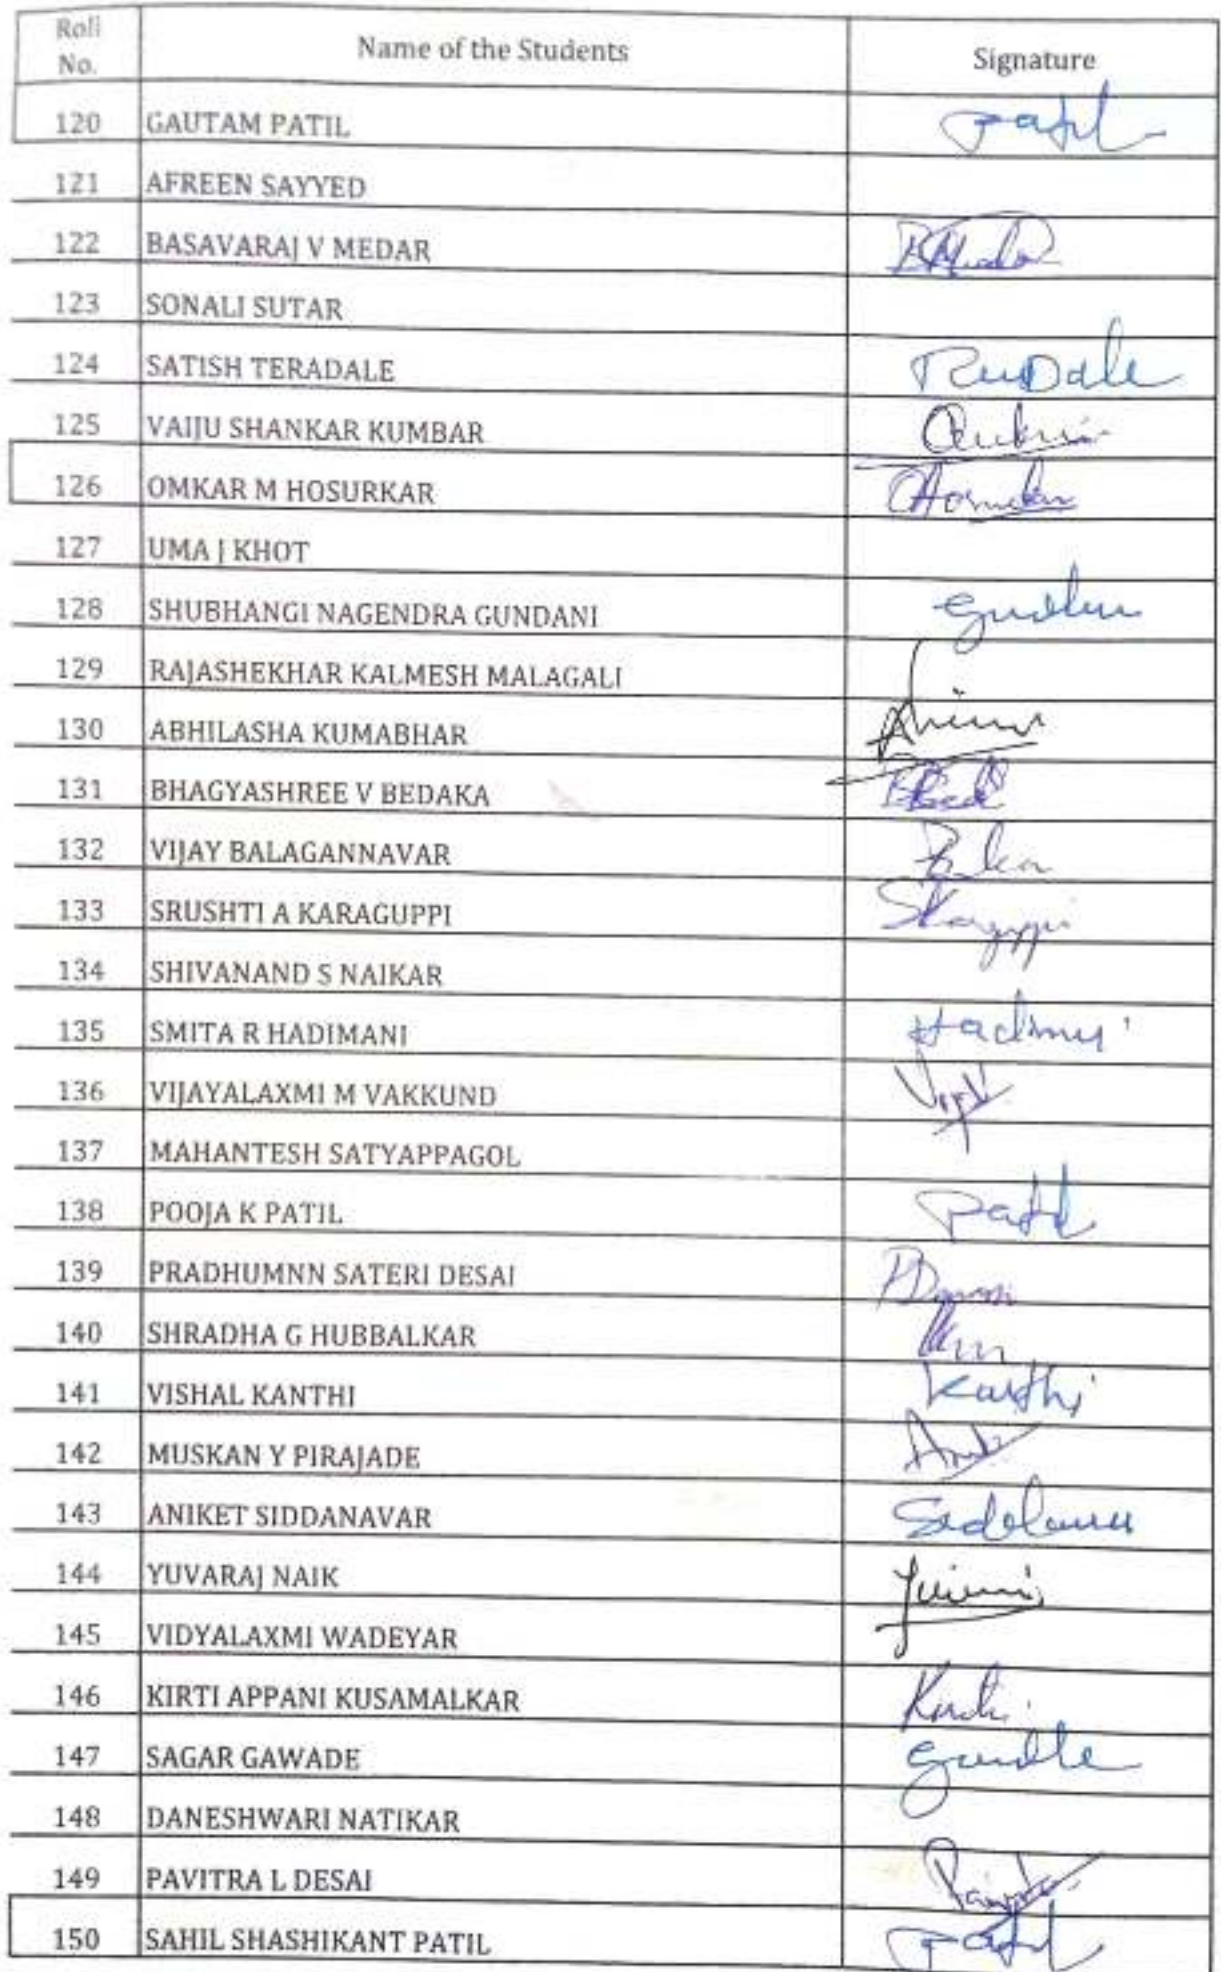 Roll No. Name of the Students Signature
120 GAUTAM PATIL Patil
121 AFREEN SAYYED
122 BASAVARAJ V MEDAR
123 SONALI SUTAR
124 SATISH TERADALE
125 VAIJU SHANKAR KUMBAR
126 OMKAR M HOSURKAR
127 UMA J KHOT
128 SHUBHANGI NAGENDRA GUNDANI
129 RAJASHEKHAR KALMESH MALAGALI
130 ABHILASHA KUMABHAR
131 BHAGYASHREE V BEDAKA
132 VIJAY BALAGANNAVAR
133 SRUSHTI A KARAGUPPI
134 SHIVANAND S NAIKAR
135 SMITA R HADIMANI
136 VIJAYALAXMI M VAKKUND
137 MAHANTESH SATYAPPAGOL
138 POOJA K PATIL Patil
139 PRADHUMNN SATERI DESAI
140 SHRADHA G HUBBALKAR
141 VISHAL KANTHI Kanthi
142 MUSKAN Y PIRAJADE
143 ANIKET SIDDANAVAR
144 YUVARAJ NAIK
145 VIDYALAXMI WADEYAR
146 KIRTI APPANI KUSAMALKAR
147 SAGAR GAWADE
148 DANESHWARI NATIKAR
149 PAVITRA L DESAI
150 SAHIL SHASHIKANT PATIL Patil